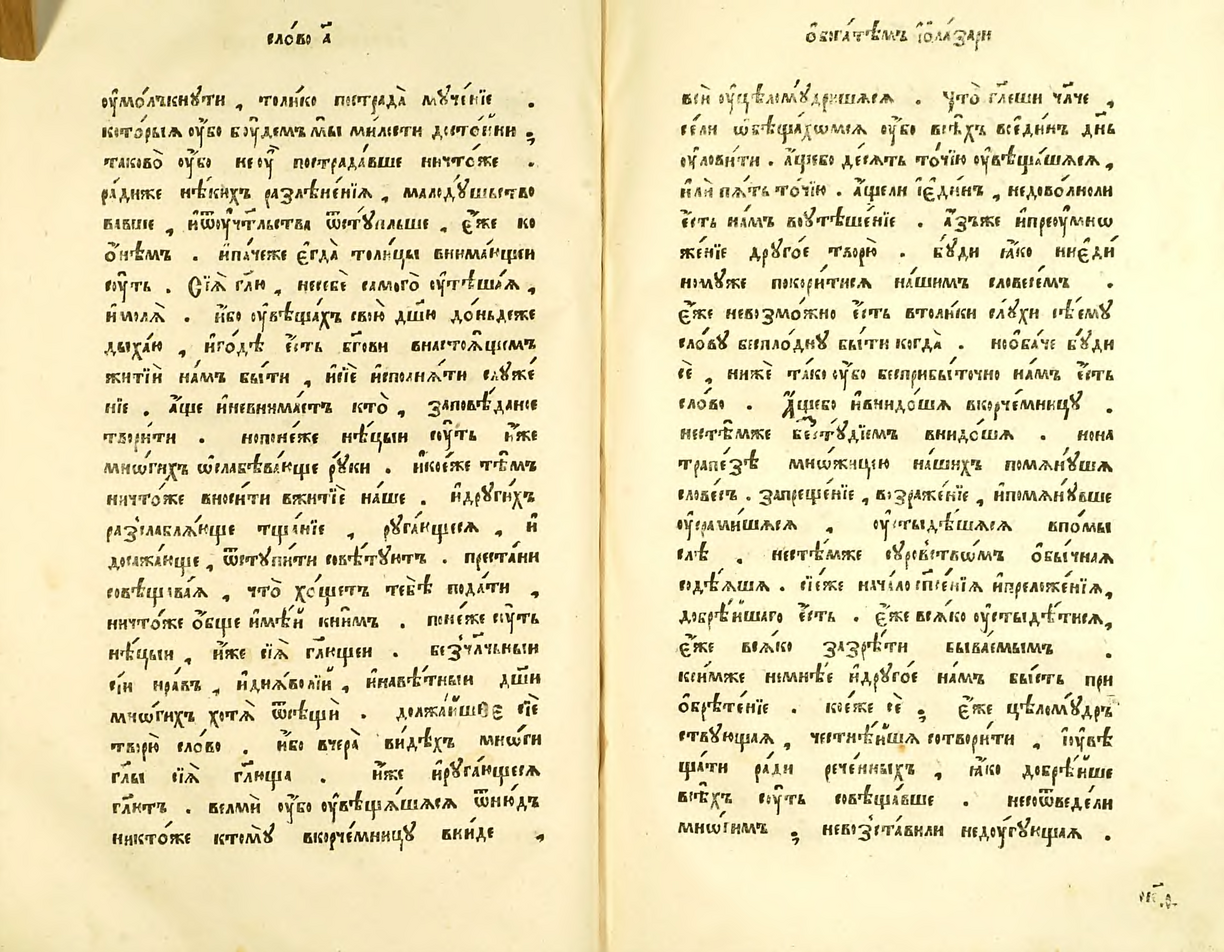 сло́во а҃
ѹ҆мо́лъкнꙋти , толи́ко пострада̀ мꙋче́нїе .
кото́рыѧ ѹ҆́бо бꙋ́демъ мы̀ ми́лости досто́йни ;
таково̀ ѹ҆́бо не ѹ҆̀ пострада́вше ничто́же .
ра́диже нѣ́кихъ разлѣне́нїѧ , малодꙋ́шьство
вавше , и҆ѿѹ҆чт҃льства ѿстꙋпльше , є҆́же ко
ѻ҆́нѣмъ . и҆па́чеже є҆гда̀ толи́цы внима́ющеи
сꙋ́ть . Сїѧ҆̀ гл҃ю , несебѐ самого̀ ѹ҆тѣша́ѧ ,
и҆ молѧ̀ . и҆́бо ѹ҆вѣща́хъ свою̀ дш҃ю до́ньдеже
дыха́ю , и҆годѣ̀ є҆́сть бг҃ови внастоѧ́щемъ
житїѝ на́мъ бы́ти , и҆сїѐ и҆сполнѧ́ти слꙋже
нїе . а҆́ще и҆невнима́етъ кто̀ , за́повѣданое
твори́ти . нопоне́же нѣ́цыи сꙋ́ть и҆́же
мнѡ́гихъ ѡ҆слабѣва́юще рꙋ́ки . и҆кое́же тѣ́мъ
ничто́же вноси́ти вжитїѐ на́ше . и҆дрꙋги́хъ
разслаблѧ́юще тща́нїе , рꙋга́ющесѧ , и҆
досажа́юще , ѿстꙋпи́ти совѣ́тꙋютъ . преста́ни
совѣщава́ѧ , что̀ хо́щетъ тебѣ̀ пода́ти ,
ничто́же ѻ҆́бще и҆мѣ́й кни́мъ . поне́же сꙋ́ть
нѣ́цыи , и҆́же сїѧ҆̀ гл҃ющеи . безчл҃чьныи
сїи нра́въ , и҆дїѧ́волїй , и҆навѣ́тныи дш҃и
мнѡ́гихъ хотѧ̀ ѿсѣщѝ . должа́йшее сїе
творю̀ сло́во . и҆́бо вчера̀ ви́дѣхъ мнѡ́ги
гл҃ы сїѧ҆̀ гл҃юща . и҆́же и҆рꙋга́ющесѧ
гл҃ютъ . велмѝ ѹ҆́бо ѹ҆вѣщѧ́шѧсѧ ѿню́дъ
никто́же ктомꙋ̀ вкорче́мницꙋ вни́де ,
ѻ҆бога́тѣмъ і҆ѻ҆ла́зари
всѝ ѹ҆цѣломꙋ́дришѧсѧ . Что̀ гл҃еши чл҃че ,
се́ли ѡ҆бѣща́хомсѧ ѹ҆́бо всѣ́хъ все́динъ дн҃ь
ѹ҆лови́ти . а҆́щебо де́сѧть то́чїю ѹ҆вѣща́шѧсѧ ,
и҆лѝ пѧ́ть то́чїю . а҆́щели і҆є҆ди́нъ , недово́лноли
є҆́сть на́мъ воꙋтѣше́нїе . а҆́зъже и҆преѹ҆мнѡ
же́нїе дрꙋго́е творю̀ . бꙋ́ди ꙗ҆́ко ниє҆ди
номꙋже покори́тисѧ на́шимъ словесе́мъ .
є҆́же невозмо́жно є҆́сть втоли́ки слꙋ́хи сѣ́емꙋ
сло́вꙋ бесплоднꙋ бы́ти когда̀ . ноѻ҆ба́че бꙋ́ди
сѐ , нижѐ та́ко ѹ҆́бо бесприбы́точно на́мъ є҆́сть
сло́во . А҆́щебо и҆внидо́шѧ вкорче́мницꙋ .
нестѣ́мже бестꙋ́дїемъ внидо́шѧ . нона
трапе́зѣ мно́жицею на́шихъ помѧнꙋ́шѧ
слове́съ . запреще́нїе , возраже́нїе , и҆помѧнꙋ́вше
ѹ҆срами́шѧсѧ , ѹ҆стыдѣ́шѧсѧ впомы
слѣ̀ . нестѣ́мже сꙋровствомъ ѻ҆бы́чнаѧ
содѣ́ѧшѧ . сїе́же нача́ло сп҃се́нїѧ и҆преложе́нїѧ ,
добрѣ́йшаго є҆́сть . є҆́же всѧ́ко ѹ҆стыдѣ́тисѧ ,
є҆́же всѧ́ко зазрѣ́ти быва́емымъ .
кси́мже неме́нѣе и҆дрꙋго́е на́мъ бы́сть при
ѻ҆брѣ́тенїе . ко́еже сѐ ; є҆́же цѣломꙋ́дръ
ствꙋющаѧ , честнѣ́йшѧ сотвори́ти , і҆ꙋвѣ
ща́ти ра́ди рече́нныхъ , ꙗ҆́ко добрѣ́йше
всѣ́хъ сꙋ́ть совѣща́вше . несоѿведѐли
мнѡ́гимъ ; невозста́вили недꙋ́гꙋющаѧ .